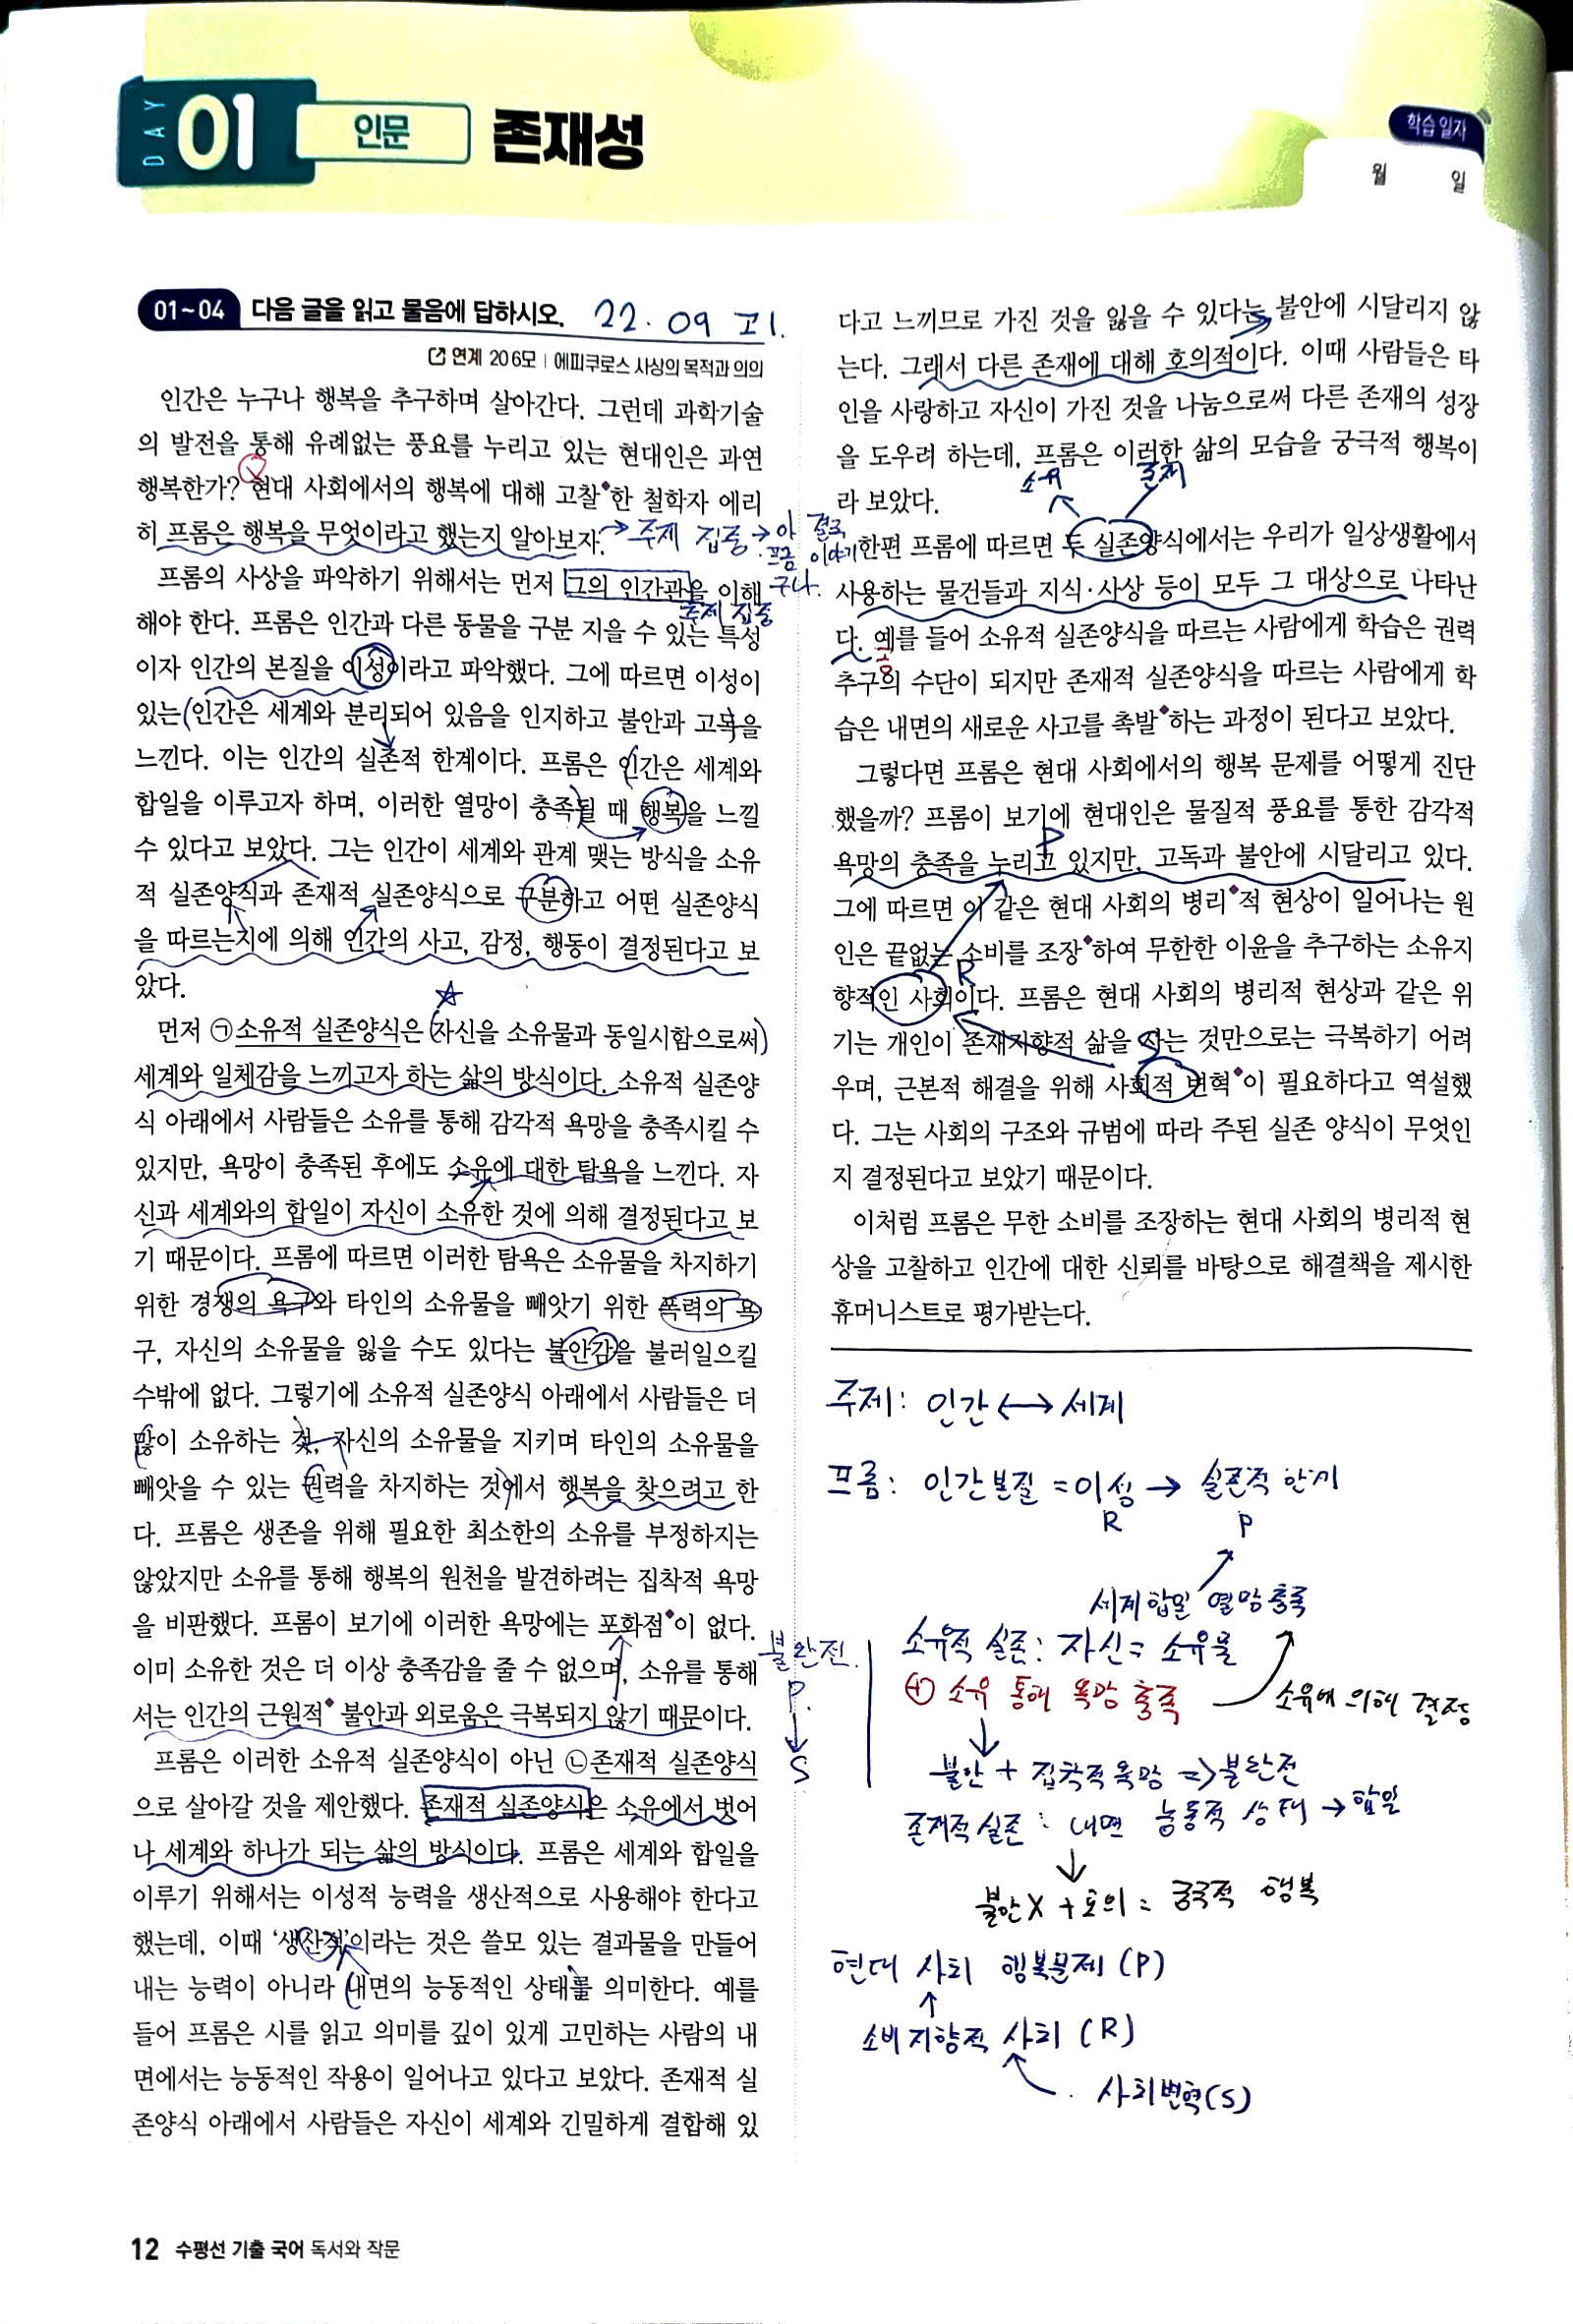 DAY 01
인문
존재성
학습 일자
월 일
01~04 다음 글을 읽고 물음에 답하시오. 22. 09 고1.
연계 20 6모 | 에피쿠로스 사상의 목적과 의의
인간은 누구나 행복을 추구하며 살아간다. 그런데 과학기술
의 발전을 통해 유례없는 풍요를 누리고 있는 현대인은 과연
행복한가? 현대 사회에서의 행복에 대해 고찰◆한 철학자 에리
히 프롬은 행복을 무엇이라고 했는지 알아보자.
→ 주제 집중 → 아 결국
프롬 이야기
구나.
프롬의 사상을 파악하기 위해서는 먼저 그의 인간관을 이해
주제 집중
해야 한다. 프롬은 인간과 다른 동물을 구분 지을 수 있는 특성
이자 인간의 본질을 이성이라고 파악했다. 그에 따르면 이성이
있는 인간은 세계와 분리되어 있음을 인지하고 불안과 고독을
느낀다. 이는 인간의 실존적 한계이다. 프롬은 인간은 세계와
합일을 이루고자 하며, 이러한 열망이 충족될 때 행복을 느낄
수 있다고 보았다. 그는 인간이 세계와 관계 맺는 방식을 소유
적 실존양식과 존재적 실존양식으로 구분하고 어떤 실존양식
을 따르는지에 의해 인간의 사고, 감정, 행동이 결정된다고 보
았다.
먼저 ㉠소유적 실존양식은 자신을 소유물과 동일시함으로써
세계와 일체감을 느끼고자 하는 삶의 방식이다. 소유적 실존양
식 아래에서 사람들은 소유를 통해 감각적 욕망을 충족시킬 수
있지만, 욕망이 충족된 후에도 소유에 대한 탐욕을 느낀다. 자
신과 세계와의 합일이 자신이 소유한 것에 의해 결정된다고 보
기 때문이다. 프롬에 따르면 이러한 탐욕은 소유물을 차지하기
위한 경쟁의 욕구와 타인의 소유물을 빼앗기 위한 폭력의 욕
구, 자신의 소유물을 잃을 수도 있다는 불안감을 불러일으킬
수밖에 없다. 그렇기에 소유적 실존양식 아래에서 사람들은 더
많이 소유하는 것, 자신의 소유물을 지키며 타인의 소유물을
빼앗을 수 있는 권력을 차지하는 것에서 행복을 찾으려고 한
다. 프롬은 생존을 위해 필요한 최소한의 소유를 부정하지는
않았지만 소유를 통해 행복의 원천을 발견하려는 집착적 욕망
을 비판했다. 프롬이 보기에 이러한 욕망에는 포화점◆이 없다.
이미 소유한 것은 더 이상 충족감을 줄 수 없으며, 소유를 통해
서는 인간의 근원적◆ 불안과 외로움은 극복되지 않기 때문이다.
불완전.
P.
↓
S
프롬은 이러한 소유적 실존양식이 아닌 ㉡존재적 실존양식
으로 살아갈 것을 제안했다. 존재적 실존양식은 소유에서 벗어
나 세계와 하나가 되는 삶의 방식이다. 프롬은 세계와 합일을
이루기 위해서는 이성적 능력을 생산적으로 사용해야 한다고
했는데, 이때 ‘생산적’이라는 것은 쓸모 있는 결과물을 만들어
내는 능력이 아니라 내면의 능동적인 상태를 의미한다. 예를
들어 프롬은 시를 읽고 의미를 깊이 있게 고민하는 사람의 내
면에서는 능동적인 작용이 일어나고 있다고 보았다. 존재적 실
존양식 아래에서 사람들은 자신이 세계와 긴밀하게 결합해 있
다고 느끼므로 가진 것을 잃을 수 있다는 불안에 시달리지 않
는다. 그래서 다른 존재에 대해 호의적이다. 이때 사람들은 타
인을 사랑하고 자신이 가진 것을 나눔으로써 다른 존재의 성장
을 도우려 하는데, 프롬은 이러한 삶의 모습을 궁극적 행복이
라 보았다.
소유 존재
한편 프롬에 따르면 두 실존양식에서는 우리가 일상생활에서
사용하는 물건들과 지식·사상 등이 모두 그 대상으로 나타난
다. 예를 들어 소유적 실존양식을 따르는 사람에게 학습은 권력
추구의 수단이 되지만 존재적 실존양식을 따르는 사람에게 학
습은 내면의 새로운 사고를 촉발◆하는 과정이 된다고 보았다.
그렇다면 프롬은 현대 사회에서의 행복 문제를 어떻게 진단
했을까? 프롬이 보기에 현대인은 물질적 풍요를 통한 감각적
P
욕망의 충족을 누리고 있지만, 고독과 불안에 시달리고 있다.
그에 따르면 이 같은 현대 사회의 병리◆적 현상이 일어나는 원
인은 끝없는 소비를 조장◆하여 무한한 이윤을 추구하는 소유지
R
향적인 사회이다. 프롬은 현대 사회의 병리적 현상과 같은 위
기는 개인이 존재지향적 삶을 사는 것만으로는 극복하기 어려
S
우며, 근본적 해결을 위해 사회적 변혁◆이 필요하다고 역설했
다. 그는 사회의 구조와 규범에 따라 주된 실존 양식이 무엇인
지 결정된다고 보았기 때문이다.
이처럼 프롬은 무한 소비를 조장하는 현대 사회의 병리적 현
상을 고찰하고 인간에 대한 신뢰를 바탕으로 해결책을 제시한
휴머니스트로 평가받는다.
주제: 인간 ↔ 세계
프롬: 인간본질 = 이성 → 실존적 한계
R P
세계합일 열망충족
소유적 실존: 자신 = 소유물
⊕ 소유 통해 욕망 충족
소유에 의해 결정
불안 + 집착적 욕망 ⇒ 불완전
존재적 실존: 내면 능동적 상태 → 합일
↓
불안X + 호의 = 궁극적 행복
현대 사회 행복문제 (P)
↑
소비지향적 사회 (R)
사회변혁(S)
12 수평선 기출 국어 독서와 작문